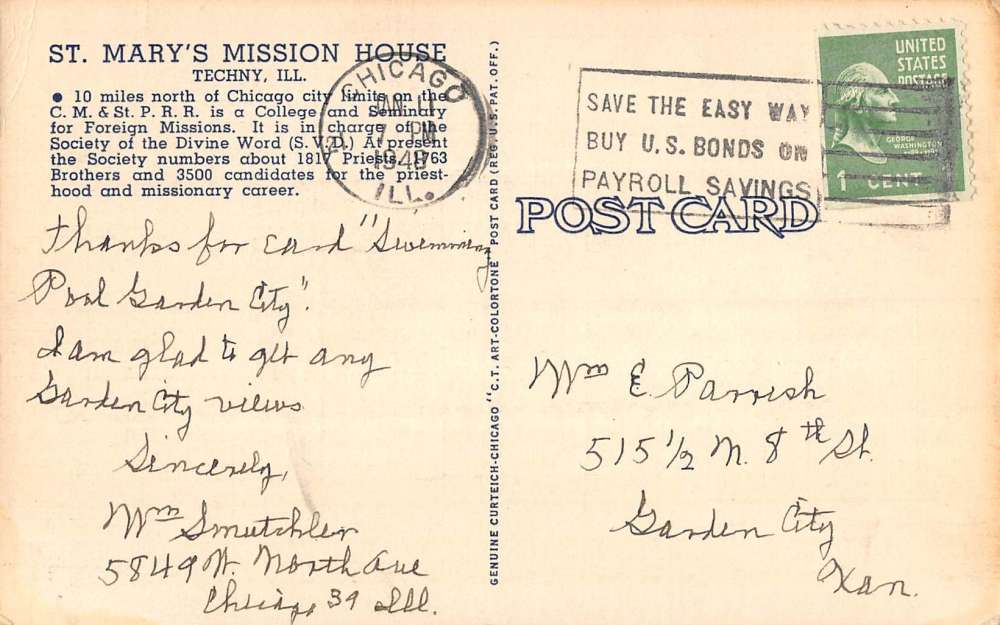 ST. MARY'S MISSION HOUSE
TECHNY, ILL.
● 10 miles north of Chicago city limits on the
C. M. & St. P. R. R. is a College and Seminary
for Foreign Missions. It is in charge of the
Society of the Divine Word (S.V.D.) At present
the Society numbers about 1817 Priests, 1763
Brothers and 3500 candidates for the priest-
hood and missionary career.
Thanks for card "Swimming
Pool Garden City".
I am glad to get any
Garden City views
Sincerely,
Wm Smutchler
5849 W. North Ave
Chicago 39 Ill.
GENUINE CURTEICH-CHICAGO "C.T. ART-COLORTONE" POST CARD (REG. U.S. PAT. OFF.)
CHICAGO
JAN 11
7 PM
1948
ILL.
SAVE THE EASY WAY
BUY U.S. BONDS ON
PAYROLL SAVINGS
UNITED
STATES
POSTAGE
GEORGE
WASHINGTON
1 CENT
POST CARD
Wm E. Parrish
515 1/2 N. 8th St.
Garden City
Kan.